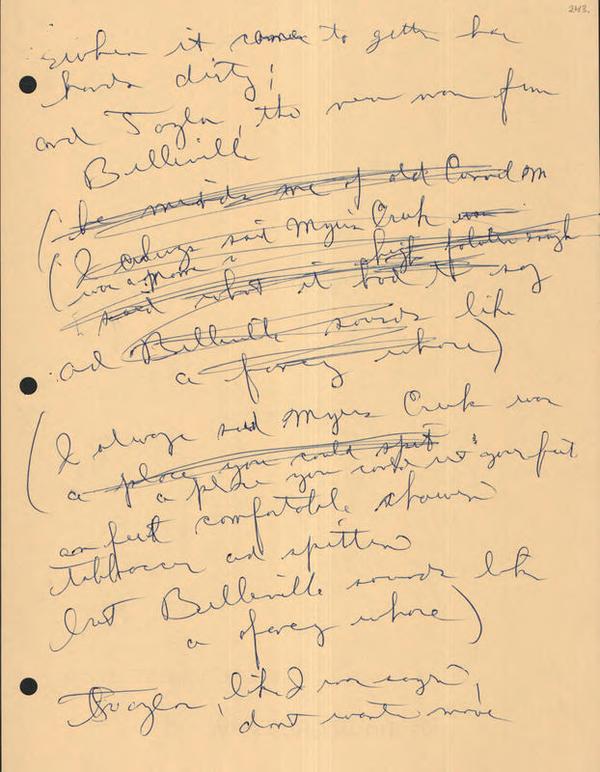 243.
when it comes to gettn her
hands dirty;
and Taylor, the new man from
Belleville
(he reminds me of old
(I always said Myers Creek was
was a
said what it had to say
ad Belleville sounds like
a fancy whore)
(I always said Myers Creek was
a place you could spit
a place you could your feet
feel comfortable
tobbaccer ad spitten
but Belleville sounds like
a fancy whore)
Taylor, like I was sayn,
dont wanta move